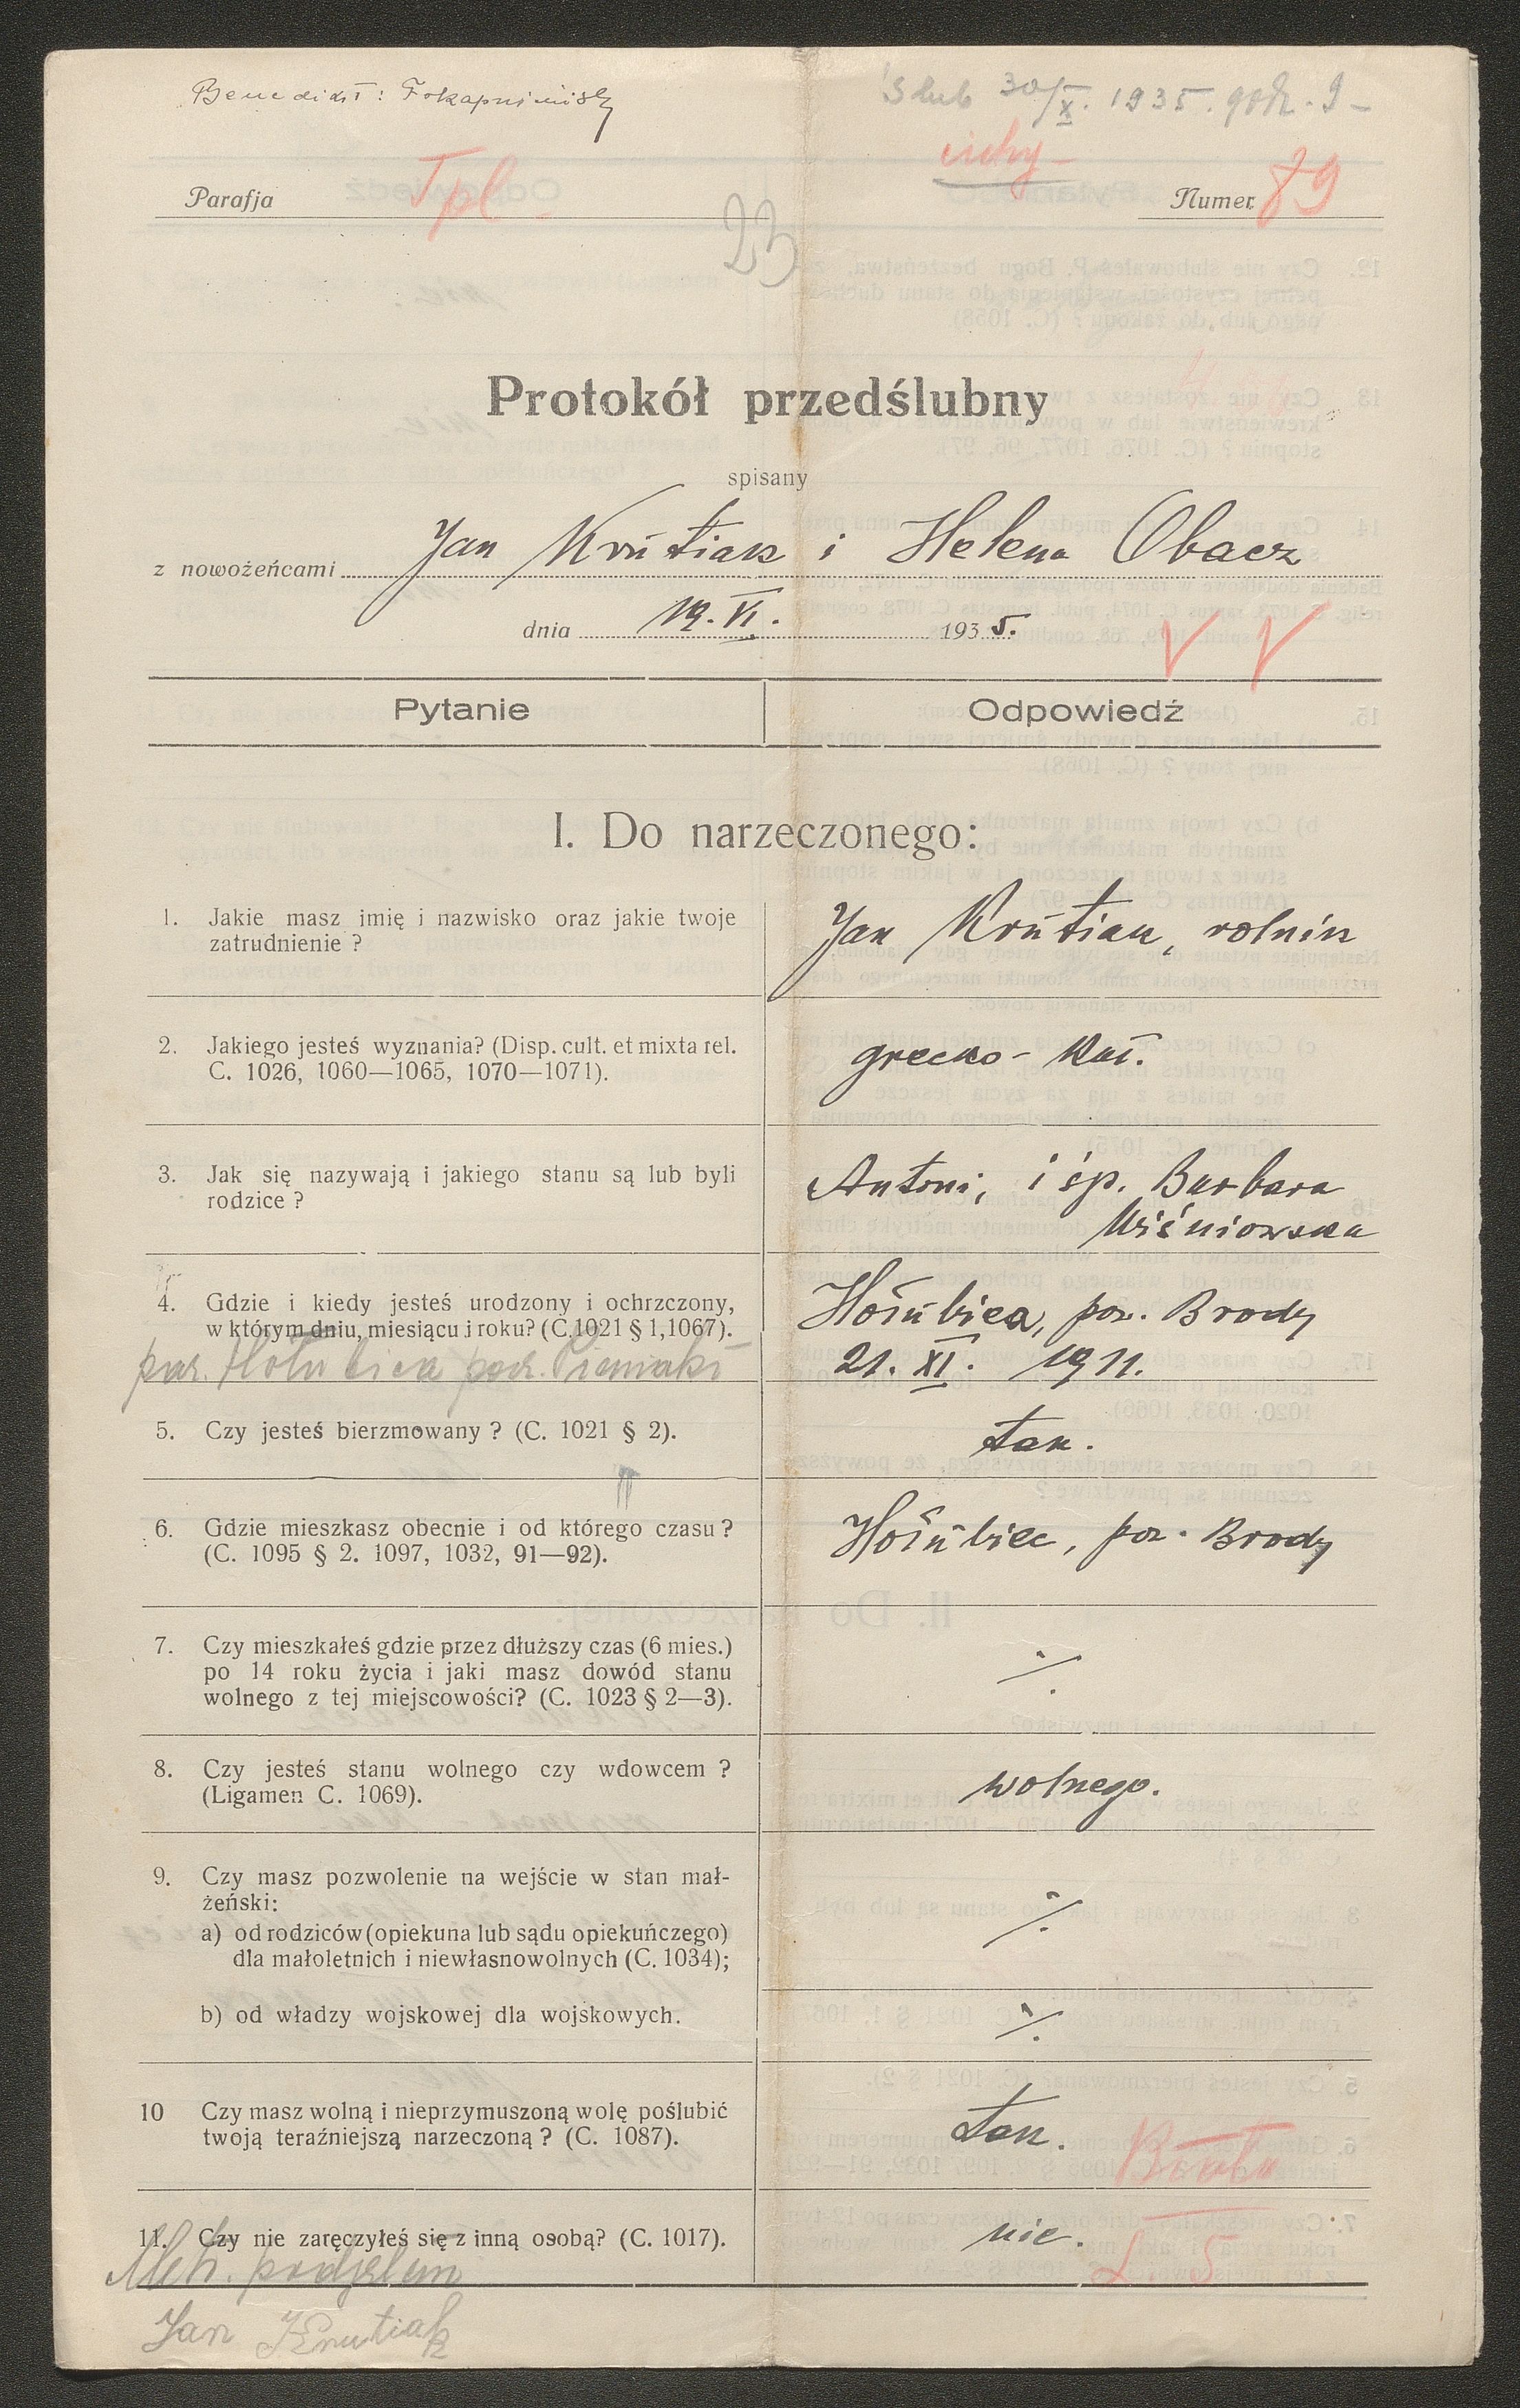 Benedikt:
Ślub 30/X. 1935. godz. 9 –
cichy –
Parafja Tpl – Numer 89
23
Protokół przedślubny
spisany
z nowożeńcami Jan Krutiak i Helena Obacz
dnia 19. VI. 1935.
Pytanie Odpowiedź
I. Do narzeczonego:
1. Jakie masz imię i nazwisko oraz jakie twoje
zatrudnienie ?
Jan Krutiak, rolnik
2. Jakiego jesteś wyznania? (Disp. cult. et mixta rel.
C. 1026, 1060—1065, 1070—1071).
grecko-kat.
3. Jak się nazywają i jakiego stanu są lub byli
rodzice ?
Antoni, i śp. Barbara
Wiśniowska
4. Gdzie i kiedy jesteś urodzony i ochrzczony,
w którym dniu, miesiącu i roku? (C.1021 § 1,1067).
par. Hołubica pocz. Pieniaki
Hołubica, pow. Brody
21. XI. 1911.
5. Czy jesteś bierzmowany ? (C. 1021 § 2).
tak.
6. Gdzie mieszkasz obecnie i od którego czasu ?
(C. 1095 § 2. 1097, 1032, 91—92).
Hołubica, pow. Brody
7. Czy mieszkałeś gdzie przez dłuższy czas (6 mies.)
po 14 roku życia i jaki masz dowód stanu
wolnego z tej miejscowości? (C. 1023 § 2—3).
·/.
8. Czy jesteś stanu wolnego czy wdowcem ?
(Ligamen C. 1069).
wolnego.
9. Czy masz pozwolenie na wejście w stan mał-
żeński:
a) od rodziców (opiekuna lub sądu opiekuńczego)
dla małoletnich i niewłasnowolnych (C. 1034);
·/.
b) od władzy wojskowej dla wojskowych.
·/.
10 Czy masz wolną i nieprzymuszoną wolę poślubić
twoją teraźniejszą narzeczoną ? (C. 1087).
tak.
11. Czy nie zaręczyłeś się z inną osobą? (C. 1017).
nie.
Metr. podjąłem
Jan Krutiak